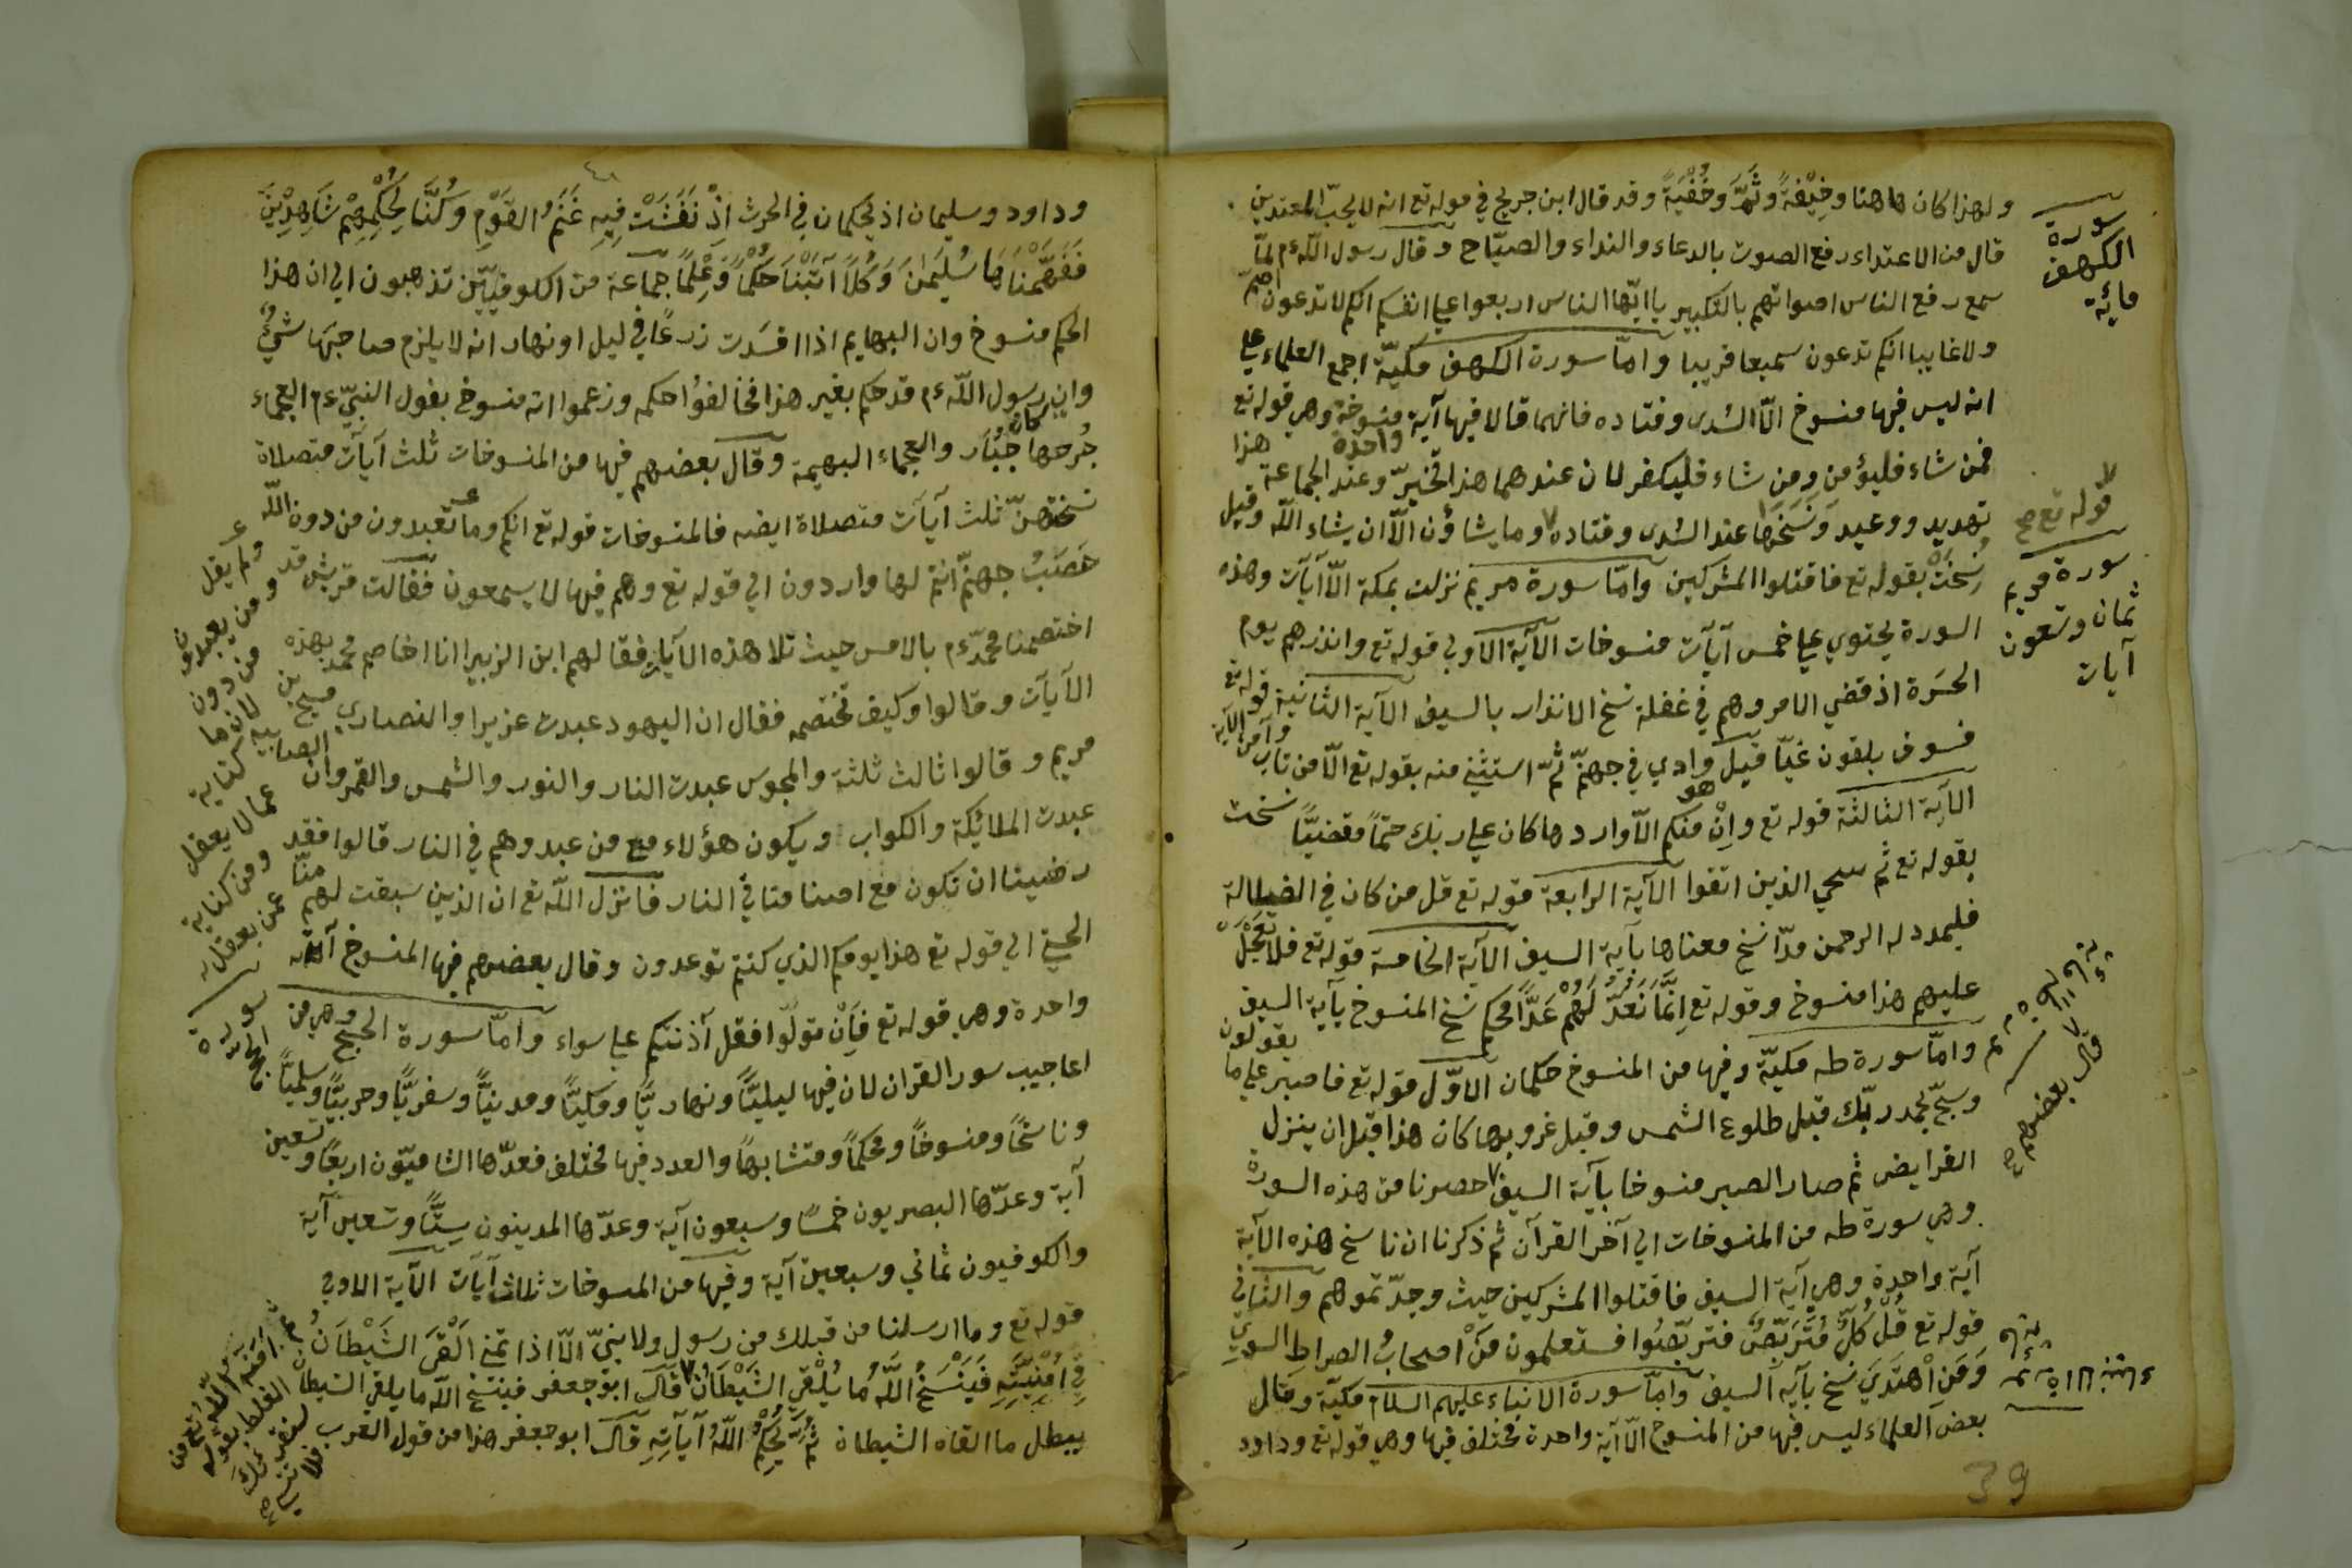 ولهذا كان هاهنا وخِيْفةً وثَمَّ وخُفْيَةً وقد قال ابن جريج في قوله تع انه لا يحبّ المعتدين
قال من الاعتداء رفع الصوت بالدعاء والنداء والصيّاح وقال رسول اللّه ءم لمّا
سمع رفع الناس اصواتهم بالتكبير يا ايّها الناس اربعوا على انفسكم انكم لا تدعون اصمّ
ولا غايبا انكم تدعون سميعا قريبا وامّا سورة الكهف مكيّة اجمع العلماء على
انه ليس فيها منسوخ الّا السُدى وقتاده فانهما قالا فيها آية واحدة منسوخة وهي قوله تع
فمن شاء فليؤمن ومن شاء فليكفر لان عندهما هذا تخيّر وعند الجماعة هذا
تهديد ووعيد وَنَسَخَهَا عند السُدى وقتاده وما يشاؤن الّا ان يشاء اللّه وقيل
نُسِخَتْ بقوله تع فاقتلوا المشركين وامّا سورة مريم نزلت بمكة الّا آيات وهذه
السورة يحتوي على خمس آيات منسوخات الآية الاولى قوله تع وانذرهم يوم
الحسرة اذ قضي الامر وهم في غفلة نسخ الانذار بالسيف الآية الثانية قوله تع
فسوف يلقون غيّا قيل وادي في جهنّم ثمّ استثنى منه بقوله تع الّا من تاب وآمن الآية
الآية الثالثة قوله تع وإنْ منكم الّا واردها كان على ربّك حتماً مقضيّاً نسخت
بقوله تع ثم ننجي الذين اتقوا الآية الرابعة قوله تع قل من كان في الضلالة
فليمدد له الرحمن مدّا نسخ معناها بآية السيف الآية الخامسة قوله تع فلا تَعْجَلْ
عليهم هذا منسوخ وقوله تع إنَّمَا نَعُدُّ لَهُمْ عَدًّا محكم نسخ المنسوخ بآية السيف
وامّا سورة طه مكيّة وفيها من المنسوخ حكمان الاوّل قوله تع فاصبر على ما يقولون
وسبّح بحمد ربّك قبل طلوع الشمس وقبل غروبها كان هذا قبل ان ينزل
الفرايض ثم صار الصبر منسوخا بآية السيف حصرنا من هذه السورة
وهي سورة طه من المنسوخات الى آخر القرآن ثم ذكرنا ان ناسخ هذه الآية
آية واحدة وهي آية السيف فاقتلوا المشركين حيث وجدّتموهم والثاني
قوله تع قُلْ كُلٌّ مُتَرَبِّصٌ فتربّصُوا فستعلمون مَنْ اصحابُ الصراط السويِّ
وَمَنِ اهْتَدَيَ نسخ بآية السيف وامّا سورة الانبياء عليهم السلام مكيّة وقال
بعض العلماء ليس فيها من المنسوخ الّا آية واحدة مختلف فيها وهي قوله تع وداود
سورة
الكهف
مائة
قوله تع صح
سورة مريم
ثمان وتسعون
آيات
قال بعضهم صح
39
وداود وسليمان اذ يحكمان في الحرث اِذْ نَفَشَتْ فِيهِ غَنَمُ القَوْمِ وَكُنَّا لِحُكْمِهِمْ شَاهِدِيْنَ
فَفَهَّمْنَاهَا سُلَيمٰنَ وَكُلاًّ آتَيْنَا حُكْمًا وَعِلْمًا جماعة من الكوفيّين تذهبون الى ان هذا
الحكم منسوخ وان البهايم اذا افسَدت زرعًا في ليل او نهار انه لا يلزم صاحبَها شيٌ
وان رسول اللّه ءم قد حكم بغير هذا فخالفوُا حكمه وزعموا انه منسوخ بقول النبيّ ءم العجماء
جُرحها جُبَار والعجماء البهيمة وقال بعضهم فيها من المنسوخات ثلث آيآت متصلاة
نسختهنّ ثلث آيآت متصلاة ايضه فالمنسوخات قوله تع انكم وما تعبدون من دون اللّه
حَصَبُ جهنّم انتم لها واردون الى قوله تع وهم فيها لا يسمعون فقالت قريش قد
اختصمنا محمّدءم بالامس حيث تلا هذه الآيات فقالهم ابن الزبيرا انا اخاصم محمد بهذه
الآيآت وقالوا وكيف تختصمه فقال ان اليهود عبدت عزيرا والنصارى مسيح بن
مريم وقالوا ثالث ثلثة والمجوس عبدت النار والنور والشمس والقمر وان الصابيه
عبدت الملائكة والكواب ويكون هؤلاء مع من عبدوهم في النار قالوا فقد
رضينا ان تكون مع اصنامنا في النار فانزل اللّه تع ان الذين سبقت لهم منّا
الحسنى الى قوله تع هذا يومكم الذي كنتم توعدون وقال بعضهم فيها المنسوخ آية
واحدة وهي قوله تع فَاِنْ تولّوا فقل آذنتكم على سواء وامّا سورة الحج وهي من
اعاجيب سور القران لان فيها ليليًّا ونهاريًّا ومكيًّا ومدنيًّا وسفريًّا وحربيًّا وسلميًّا
وناسخًا ومنسوخًا ومحكمًا ومتشابهًا والعدد فيها مختلف فعدّها الشاميّون اربعًا وتسعين
آية وعدّها البصريون خمسًا وسبعون آية وعدّها المدينون سِتًّا وتسعين آية
والكوفيون ثماني وسبعين آية وفيها من المسوخات ثلاث آيآت الآية الاولى
قوله تع وما ارسلنا من قبلك من رسول ولا نبيّ الّا اذا تمنى اَلْقَى الشَيْطَانُ
فِي اُمْنِيَّتِهِ فَيَنْسَخُ اللّهُ ما يُلْقِي الشَيْطَانُ قال ابو جعفر فينسخ اللّه ما يلقي الشيطان
يبطل ما القاه الشيطان ثُمَّ يُحْكِمُ اللّهُ آيَآتِهِ قال ابو جعفر هذا من قول العرب
ولم يقل
ومن يعبدون
من دون
لان ما
كناية
عمالا يعقل
ومن كناية
عمن يعقل
سورة
الحجّ